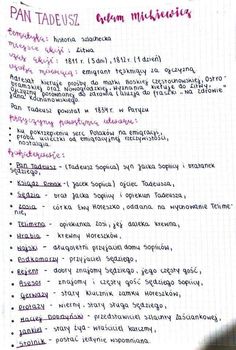 PAN TADEUSZ Adam Mickiewicz
tematyka: historia szlachecka
miejsce akcji: Litwa
czas akcji: 1811 r. (5 dni), 1812 r. (1 dzień)
osoba mówiąca: emigrant tęskniący za ojczyzną
Adresat kieruje prośbę do Matki Boskiej Częstochowskiej, Ostro-
bramskiej oraz Nowogródzkiej, wyznania kieruje do Litwy.
ojczyzny porównanej do zdrowia (aluzja do fraszki „Na zdrowie"
Jana Kochanowskiego.
Pan Tadeusz powstał w 1834 r. w Paryżu
przyczyny powstania utworu:
• ku pokrzepieniu serc Polaków na emigracji,
• próba ucieczki od emigracyjnej rzeczywistości,
• nostalgia.
Bohaterowie:
• Pan Tadeusz - (Tadeusz Soplica) syn Jacka Soplicy i bratanek
Sędziego,
• Ksiądz Robak - (Jacek Soplica) ojciec Tadeusza,
• Sędzia - brat Jacka Soplicy i opiekun Tadeusza,
• Zosia - córka Ewy Horeszko, oddana na wychowanie Telime-
nie,
• Telimena - opiekunka Zosi, jej daleka krewna,
• Hrabia - krewny Horeszków,
• Wojski - długoletni przyjaciel domu Sopliców,
• Podkomorzy - przyjaciel Sędziego,
• Rejent - dobry znajomy Sędziego, jego częsty gość,
• Asesor - znajomy i częsty gość Sędziego Soplicy
• Gerwazy - stary klucznik zamku Horeszków,
• Protazy - wierny, stary sługa Sędziego,
• Maciej Dobrzyński - przedstawiciel szlachty zaściankowej,
• Jankiel - stary Żyd, właściciel karczmy,
• Stolnik - postać jedynie wspomniana.